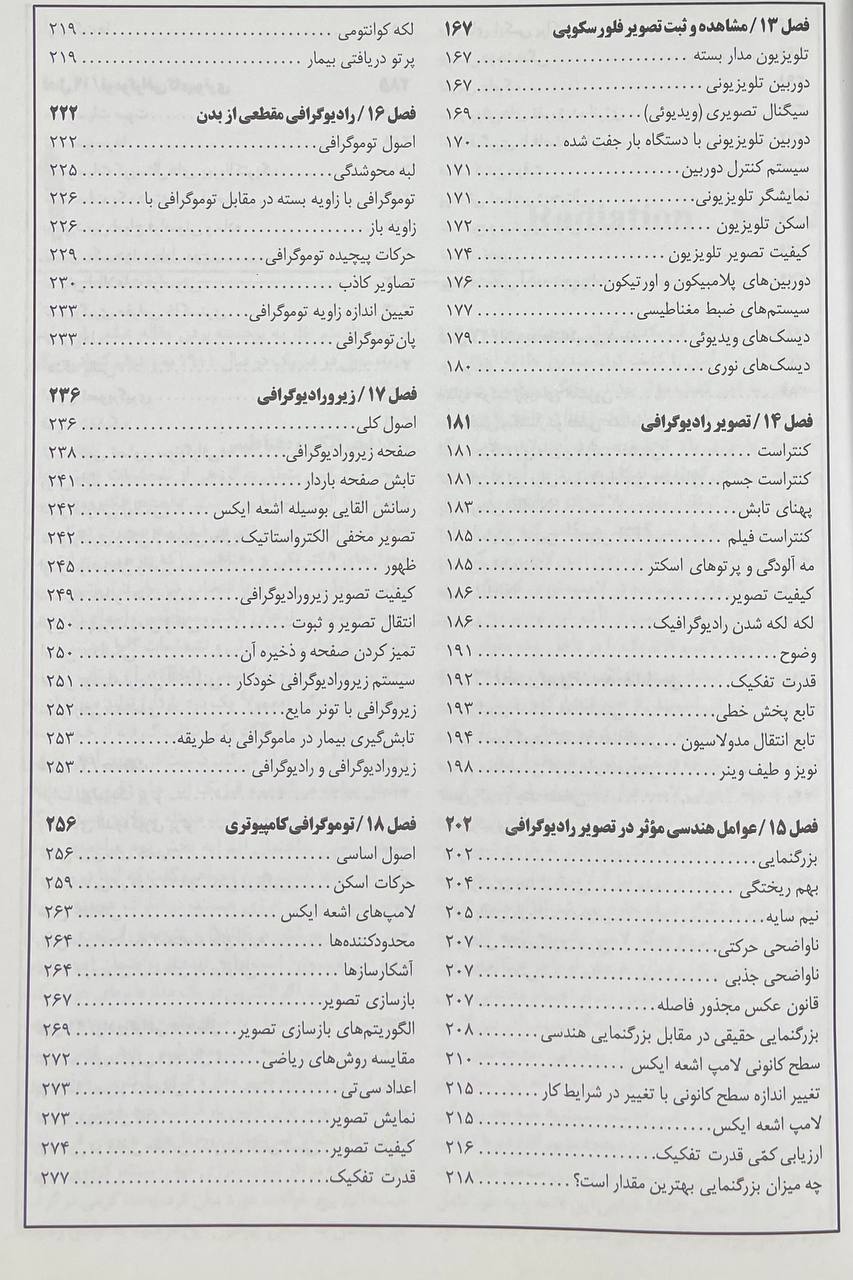 فصل ۱۳/ مشاهده و ثبت تصویر فلورسکوپی ۱۶۷
تلویزیون مدار بسته ........................ ۱۶۷
دوربین تلویزیونی ........................ ۱۶۷
سیگنال تصویری (ویدیوئی) ........................ ۱۶۹
دوربین تلویزیونی با دستگاه بار جفت شده ............ ۱۷۰
سیستم کنترل دوربین ........................ ۱۷۱
نمایشگر تلویزیونی ........................ ۱۷۱
اسکن تلویزیون ........................ ۱۷۲
کیفیت تصویر تلویزیون ........................ ۱۷۴
دوربین‌های پلامبیکون و اورتیکون ............ ۱۷۶
سیستم‌های ضبط مغناطیسی ........................ ۱۷۷
دیسک‌های ویدیوئی ........................ ۱۷۹
دیسک‌های نوری ........................ ۱۸۰
فصل ۱۴/ تصویر رادیوگرافی ۱۸۱
کنتراست ........................ ۱۸۱
کنتراست جسم ........................ ۱۸۱
پهنای تابش ........................ ۱۸۳
کنتراست فیلم ........................ ۱۸۵
مه آلودگی و پرتوهای اسکتر ........................ ۱۸۵
کیفیت تصویر ........................ ۱۸۶
لکه لکه شدن رادیوگرافیک ........................ ۱۸۶
وضوح ........................ ۱۹۱
قدرت تفکیک ........................ ۱۹۲
تابع پخش خطی ........................ ۱۹۳
تابع انتقال مدولاسیون ........................ ۱۹۴
نویز و طیف وینر ........................ ۱۹۸
فصل ۱۵/ عوامل هندسی مؤثر در تصویر رادیوگرافی ۲۰۲
بزرگنمایی ........................ ۲۰۲
بهم ریختگی ........................ ۲۰۴
نیم سایه ........................ ۲۰۵
ناواضحی حرکتی ........................ ۲۰۷
ناواضحی جذبی ........................ ۲۰۷
قانون عکس مجذور فاصله ........................ ۲۰۷
بزرگنمایی حقیقی در مقابل بزرگنمایی هندسی ............ ۲۰۸
سطح کانونی لامپ اشعه ایکس ........................ ۲۱۰
تغییر اندازه سطح کانونی با تغییر در شرایط کار ........ ۲۱۵
لامپ اشعه ایکس ........................ ۲۱۵
ارزیابی کمّی قدرت تفکیک ........................ ۲۱۶
چه میزان بزرگنمایی بهترین مقدار است؟ ............ ۲۱۸
لکه کوانتومی ........................ ۲۱۹
پرتو دریافتی بیمار ........................ ۲۱۹
فصل ۱۶/ رادیوگرافی مقطعی از بدن ۲۲۲
اصول توموگرافی ........................ ۲۲۲
لبه محوشدگی ........................ ۲۲۵
توموگرافی با زاویه بسته در مقابل توموگرافی با ........ ۲۲۶
زاویه باز ........................ ۲۲۶
حرکات پیچیده توموگرافی ........................ ۲۲۹
تصاویر کاذب ........................ ۲۳۰
تعیین اندازه زاویه توموگرافی ........................ ۲۳۳
پان‌توموگرافی ........................ ۲۳۳
فصل ۱۷/ زیرورادیوگرافی ۲۳۶
اصول کلی ........................ ۲۳۶
صفحه زیرورادیوگرافی ........................ ۲۳۸
تابش صفحه باردار ........................ ۲۴۱
رسانش القایی بوسیله اشعه ایکس ............ ۲۴۲
تصویر مخفی الکترواستاتیک ........................ ۲۴۲
ظهور ........................ ۲۴۵
کیفیت تصویر زیرورادیوگرافی ........................ ۲۴۹
انتقال تصویر و ثبوت ........................ ۲۵۰
تمیز کردن صفحه و ذخیره آن ........................ ۲۵۰
سیستم زیرورادیوگرافی خودکار ............ ۲۵۱
زیروگرافی با تونر مایع ........................ ۲۵۲
تابش‌گیری بیمار در ماموگرافی به طریقه ............ ۲۵۳
زیرورادیوگرافی و رادیوگرافی ........................ ۲۵۳
فصل ۱۸/ توموگرافی کامپیوتری ۲۵۶
اصول اساسی ........................ ۲۵۶
حرکات اسکن ........................ ۲۵۹
لامپ‌های اشعه ایکس ........................ ۲۶۳
محدودکننده‌ها ........................ ۲۶۴
آشکارسازها ........................ ۲۶۴
بازسازی تصویر ........................ ۲۶۷
الگوریتم‌های بازسازی تصویر ........................ ۲۶۹
مقایسه روش‌های ریاضی ........................ ۲۷۲
اعداد سی‌تی ........................ ۲۷۳
نمایش تصویر ........................ ۲۷۳
کیفیت تصویر ........................ ۲۷۴
قدرت تفکیک ........................ ۲۷۷